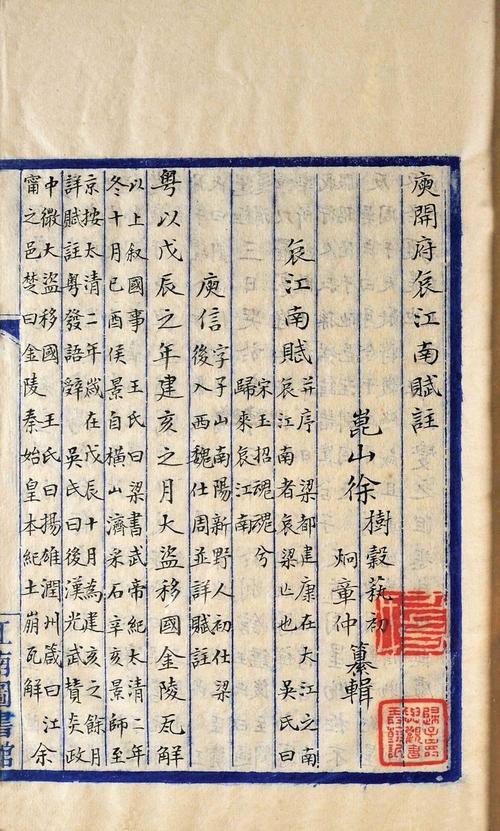 庾開府哀江南賦註
崑山徐
樹榖藝初
炯章仲
纂輯
哀江南賦
并序 梁都建康在大江之南
哀江南者哀梁亡也 吳氏曰
宋玉招魂魂兮
歸來哀江南
庾信
字子山南陽新野人初仕梁
後入西魏仕周並詳賦註
粤以戊辰之年建亥之月大盜移國金陵瓦解
以上叙國事 王氏曰梁書武帝紀太清二年
冬十月己酉侯景自橫山濟采石辛亥景師至
京按太清二年歲在戊辰十月為建亥之餘月
詳賦註粤發語辭 吳氏曰後漢光武賛炎政
中微大盜移國 王氏曰揚雄潤州箴曰江余
甯之邑楚曰金陵秦始皇本紀土崩瓦解
江南圖書館